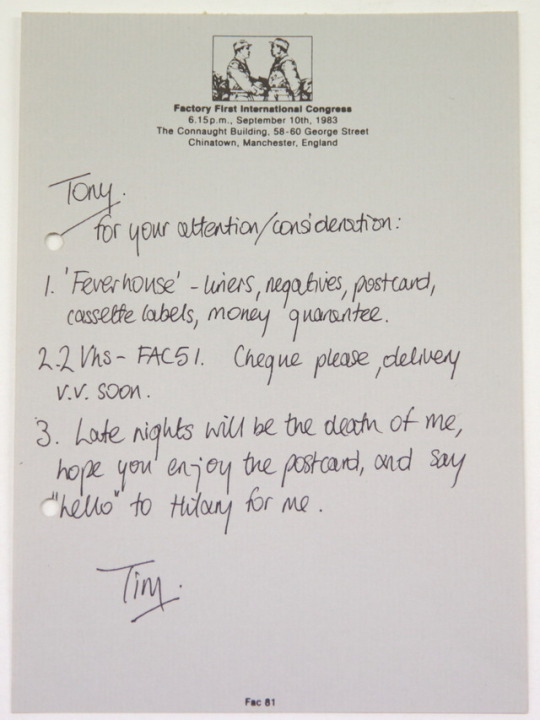 Factory First International Congress
6.15p.m., September 10th, 1983
The Connaught Building, 58-60 George Street
Chinatown, Manchester, England
Tony.
for your attention/consideration:
1. 'Feverhouse' - liners, negatives, postcard,
cassette labels, money guarantee.
2. 2 Vhs - FAC51. Cheque please, delivery
v.v. soon.
3. Late nights will be the death of me,
hope you enjoy the postcard, and say
"hello" to Hilary for me.
Tim.
Fac 81